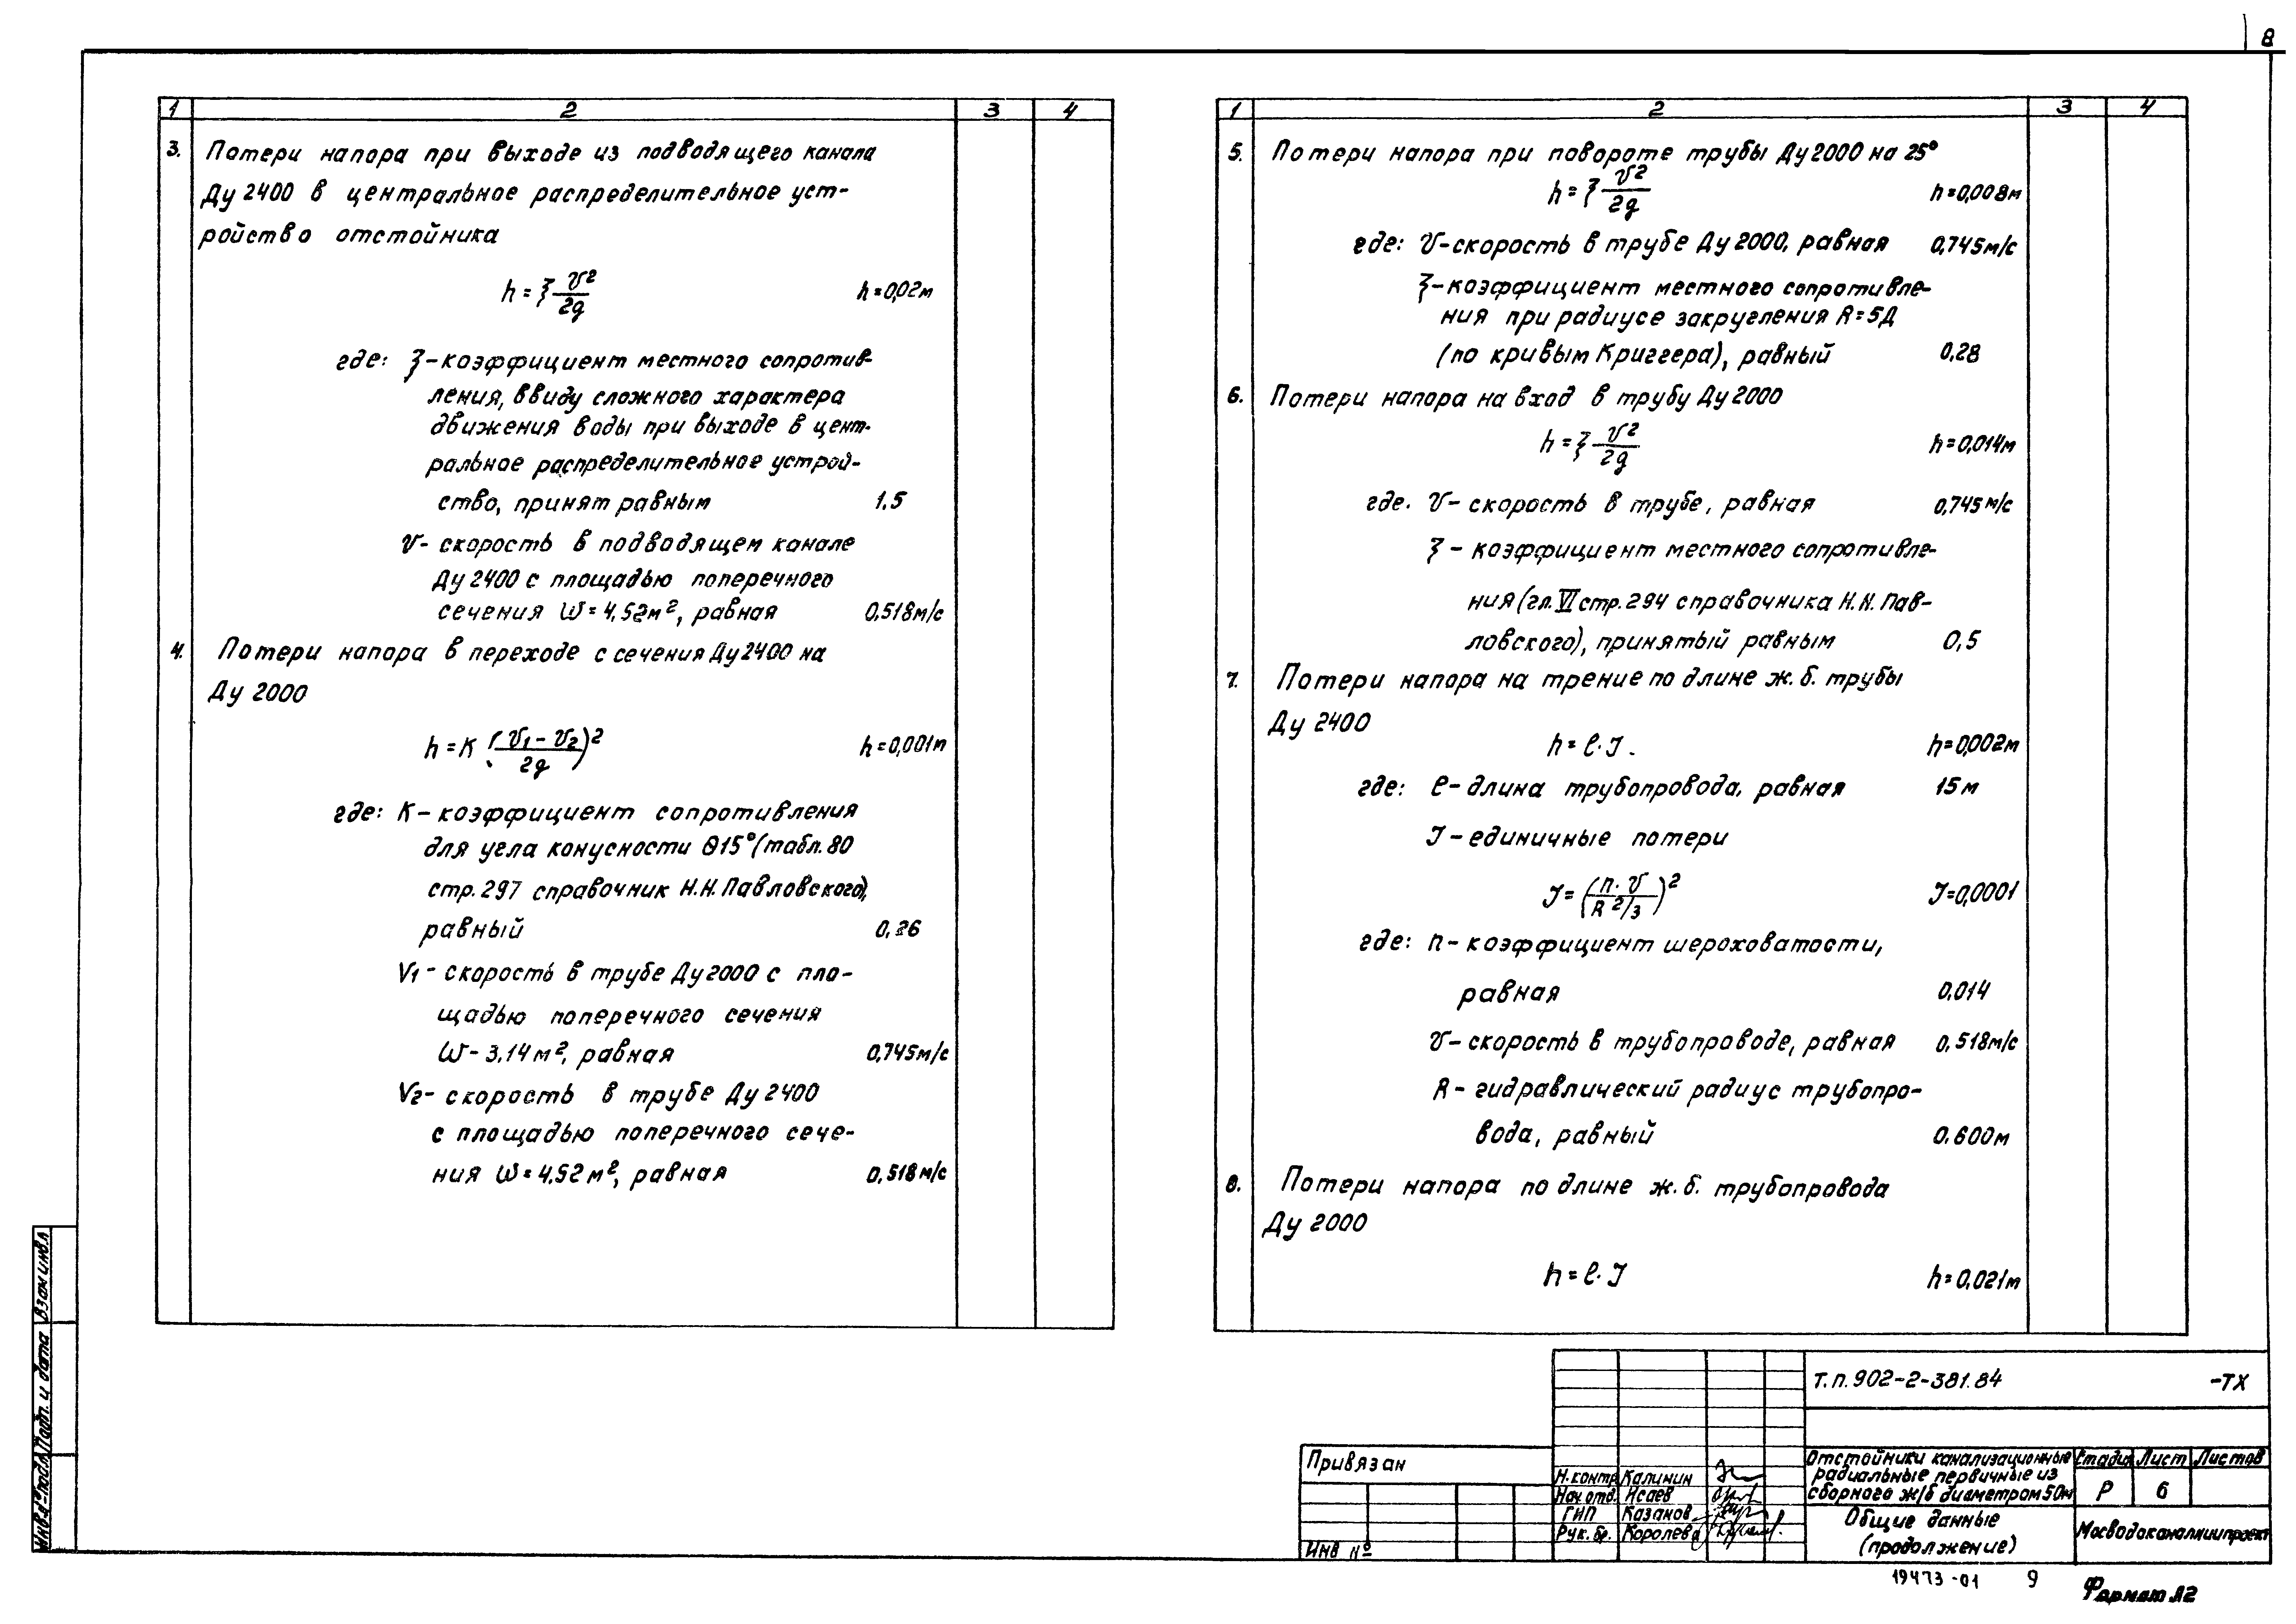 8
1 2 3 4
3. Потери напора при выходе из подводящего канала
Ду 2400 в центральное распределительное уст-
ройство отстойника
h = ξ v²/2g h=0,02м
где: ξ-коэффициент местного сопротив-
ления, ввиду сложного характера
движения воды при выходе в цент-
ральное распределительное устрой-
ство, принят равным 1.5
v- скорость в подводящем канале
Ду 2400 с площадью поперечного
сечения W = 4,52м², равная 0,518м/с
4. Потери напора в переходе с сечения Ду 2400 на
Ду 2000
h = K (v1 - v2 / 2g)² h=0,001м
где: K - коэффициент сопротивления
для угла конусности Θ15° (табл. 80
стр. 297 справочник Н.Н. Павловского),
равный 0,26
V1 - скорость в трубе Ду 2000 с пло-
щадью поперечного сечения
W- 3,14м², равная 0,745м/с
V2- скорость в трубе Ду 2400
с площадью поперечного сече-
ния W = 4,52 м², равная 0,518м/с
1 2 3 4
5. Потери напора при повороте трубы Ду 2000 на 25°
h = ξ v²/2g h=0,008м
где: v-скорость в трубе Ду 2000, равная 0,745м/с
ξ-коэффициент местного сопротивле-
ния при радиусе закругления R=5Д
(по кривым Криггера), равный 0,28
6. Потери напора на вход в трубу Ду 2000
h = ξ v²/2g h=0,014м
где. v- скорость в трубе, равная 0,745м/с
ξ - коэффициент местного сопротивле-
ния (гл. VI стр. 294 справочника Н.Н. Пав-
ловского), принятый равным 0,5
7. Потери напора на трение по длине ж.б. трубы
Ду 2400
h = ℓ·J. h=0,002м
где: ℓ-длина трубопровода, равная 15м
J - единичные потери
J = (n·v / R 2/3)² J=0,0001
где: n- коэффициент шероховатости,
равная 0.014
v- скорость в трубопроводе, равная 0,518м/с
R - гидравлический радиус трубопро-
вода, равный 0,600м
8. Потери напора по длине ж.б. трубопровода
Ду 2000
h = ℓ·J h=0,021м
Взам инв.№
Подп. и дата
Инв.№ подл.
Привязан
Инв №
Н.контр Калинин
Нач.отд. Исаев
ГИП Казанов
Рук. бр. Королева
Т.п. 902-2-381.84 -ТХ
Отстойники канализационные
радиальные первичные из
сборного ж/б диаметром 50м
Стадия Лист Листов
Р 6
Общие данные
(продолжение)
Мосводоканалниипроект
19473-01 9
Формат А2